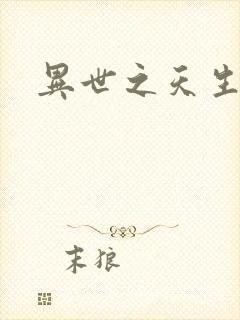 異世之天生
末狼